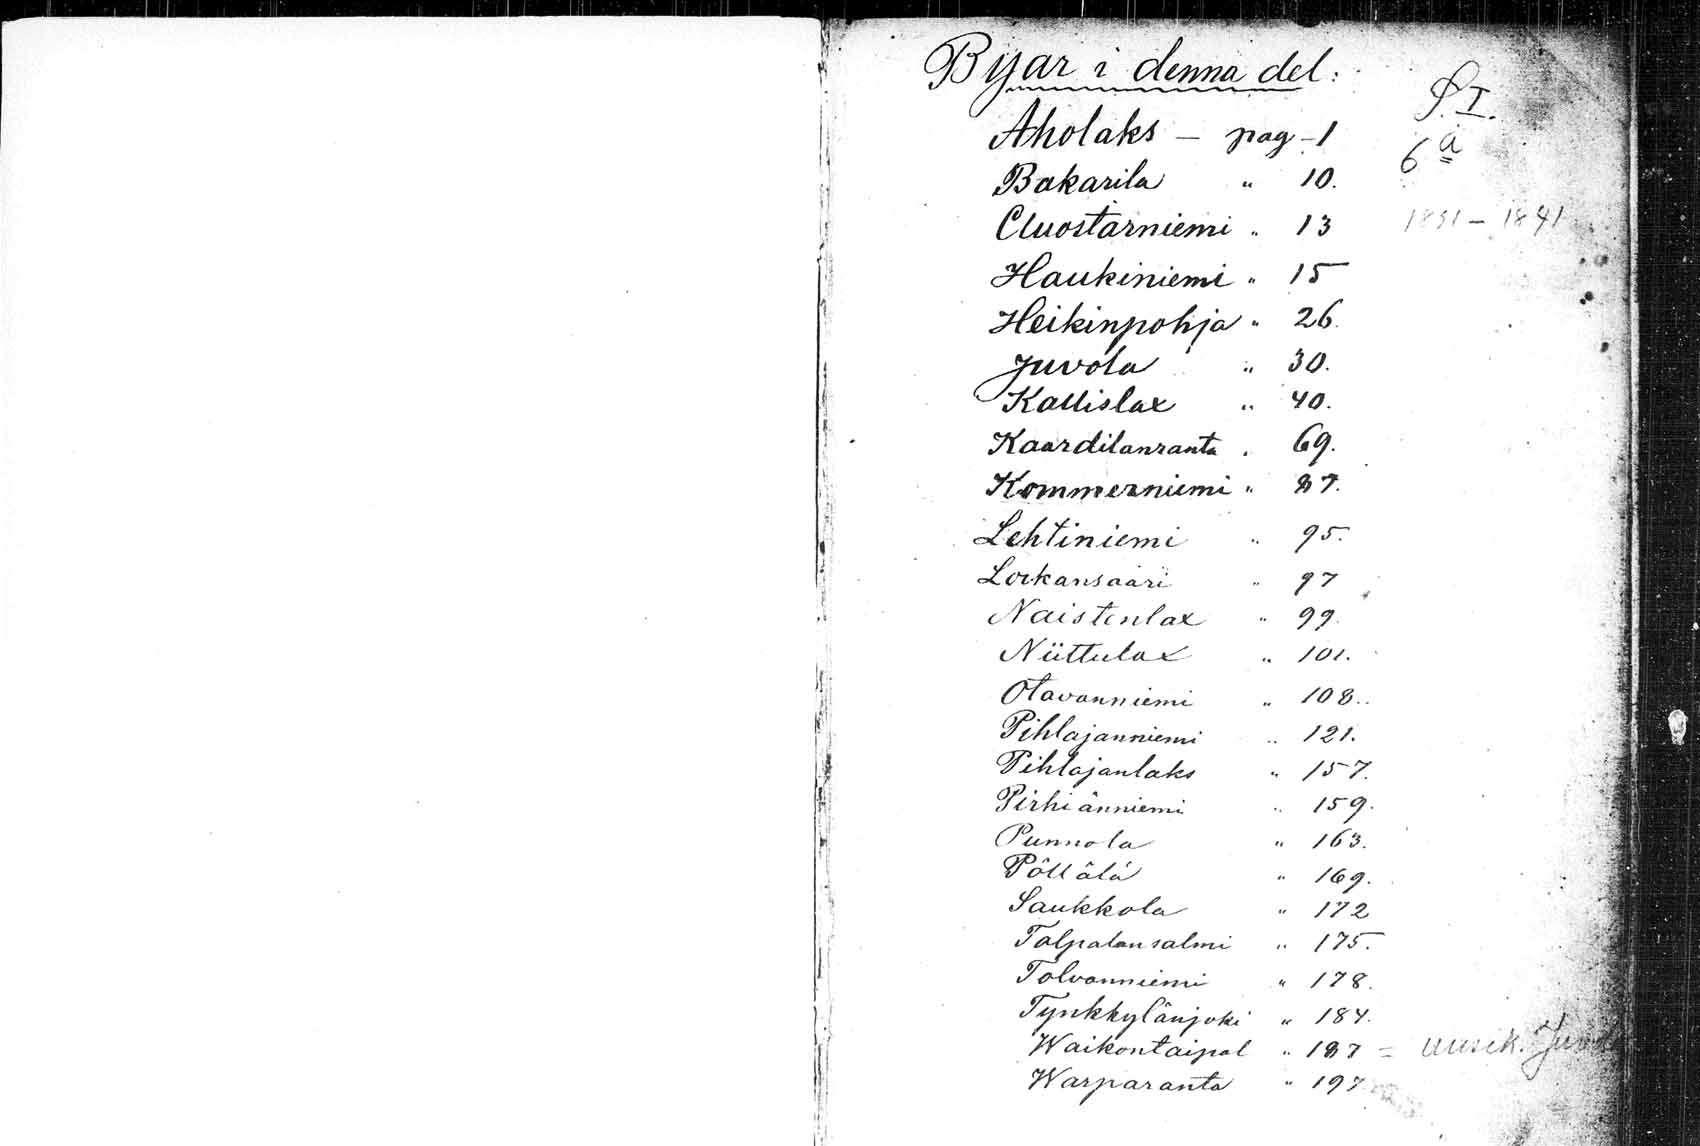 Byar i denna del:
S. I.
Aholaks – pag – 1
6 a
Bakarila " 10.
Cluostarniemi " 13
1831 – 1841
Haukiniemi " 15
Heikinpohja " 26.
Juvola " 30.
Kallislax " 40.
Kaardilanranta " 69.
Kommerniemi " 87.
Lehtiniemi " 95.
Loikansaari " 97
Naistenlax " 99.
Niittulax " 101.
Otavanniemi " 108.
Pihlajanniemi " 121.
Pihlajanlaks " 157.
Pirhiänniemi " 159.
Punnola " 163.
Pöllälä " 169.
Saukkola " 172
Talpalansalmi " 175.
Tolvanniemi " 178.
Tynkkylänjoki " 184.
Waikontaipal " 187 =
Warparanta " 197